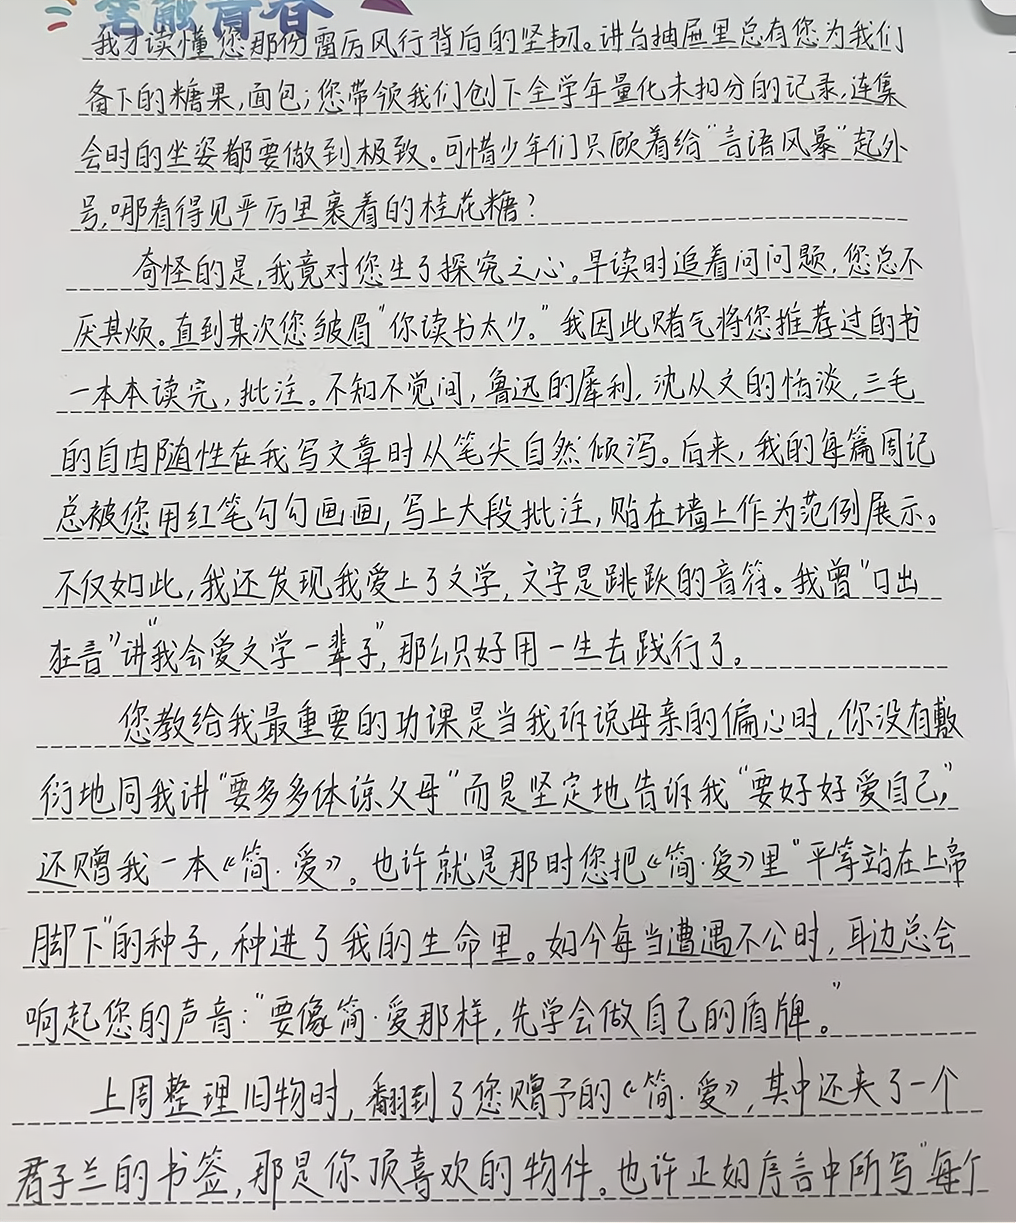 笔融青春
我才读懂您那份雷厉风行背后的坚韧。讲台抽屉里总有您为我们
备下的糖果,面包;您带领我们创下全学年量化未扣分的记录,连集
会时的坐姿都要做到极致。可惜少年们只顾着给“言语风暴”起外
号,哪看得见严厉里裹着的桂花糖?
奇怪的是,我竟对您生了探究之心。早读时追着问问题,您总不
厌其烦。直到某次您皱眉“你读书太少。”我因此赌气将您推荐过的书
一本本读完,批注。不知不觉间,鲁迅的犀利,沈从文的恬淡,三毛
的自由随性在我写文章时从笔尖自然倾泻。后来,我的每篇周记
总被您用红笔勾勾画画,写上大段批注,贴在墙上作为范例展示。
不仅如此,我还发现我爱上了文学,文字是跳跃的音符。我曾“口出
狂言”讲“我会爱文学一辈子”,那么只好用一生去践行了。
您教给我最重要的功课是当我诉说母亲的偏心时,你没有敷
衍地同我讲“要多多体谅父母”而是坚定地告诉我“要好好爱自己,”
还赠我一本《简·爱》。也许就是那时您把《简·爱》里“平等站在上帝
脚下”的种子,种进了我的生命里。如今每当遭遇不公时,耳边总会
响起您的声音:“要像简·爱那样,先学会做自己的盾牌。”
上周整理旧物时,翻到了您赠予的《简·爱》,其中还夹了一个
君子兰的书签,那是你顶喜欢的物件。也许正如序言中所写“每个